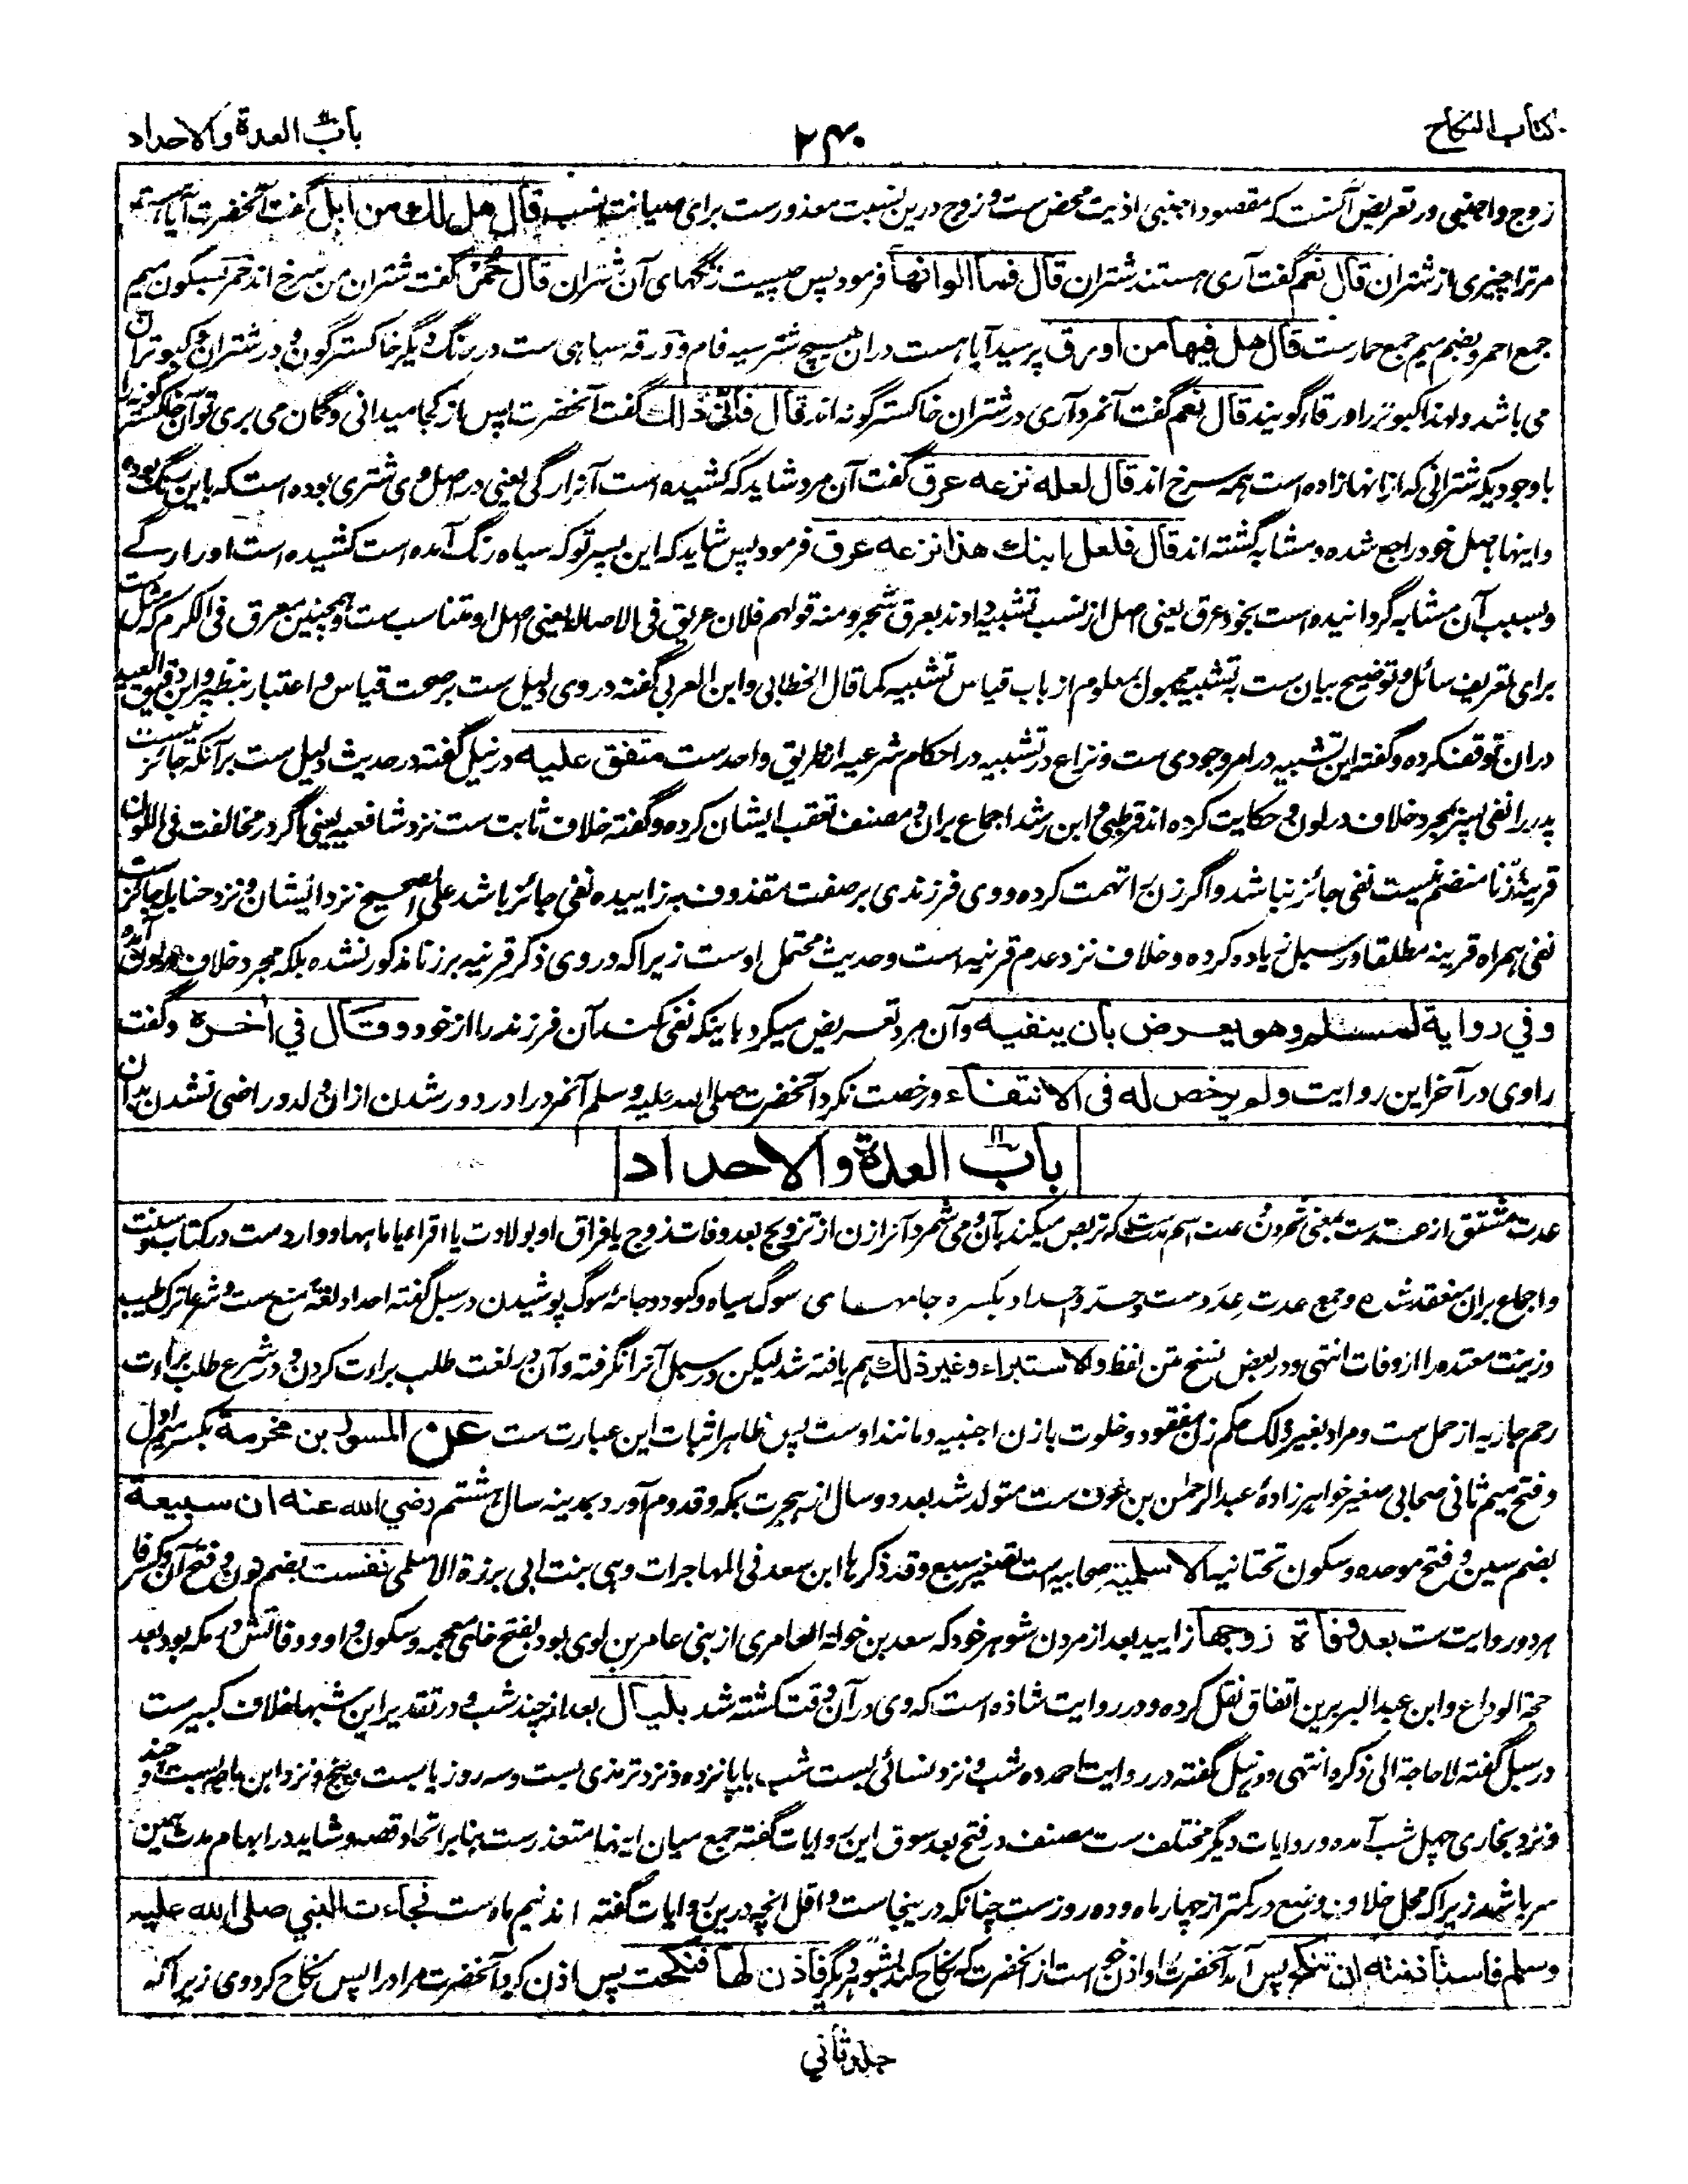 کتاب النکاح
۲۴۰
باب العدة والاحداد
زوج واجنبی در تعریض آنست که مقصود اجنبی اذیت محض ست و زوج درین نسبت معذورست برای صیانت نسب قال هل لك من ابل گفت آنحضرت آیا هستند
مر ترا چیزی از شتران قال نعم گفت آری هستند شتران قال فما الوانها فرمود پس چیست رنگهای آن شتران قال حُمْرٌ گفت شتران من سرخ اند حمر بسکون میم
جمع احمر و بضم میم جمع حمارست قال هل فیها من اورق پرسید آیا هست دران هیچ شتر سیه فام و ورقه سیاهی ست در رنگ دیگر خاکستر گون و در شتران و کبوتران
می باشد ولهذا کبوتر را ورقاء گویند قال نعم گفت آنمرد آری در شتران خاکستر گونه اند قال فأنّٰی ذلك گفت آنحضرت پس از کجا میدانی و گمان می بری تو آن خاکستر گونه را
باوجودیکه شترانی که ازانها زاده است همه سرخ اند قال لعله نزعه عرق گفت آن مرد شاید که کشیده است آنرا رگی یعنی در اصل وی شتری بوده است که باین رنگ بوده
واینها باصل خود راجع شده و مشابه گشته اند قال فلعل ابنك هذا نزعه عرق فرمود پس شاید که این پسر تو که سیاه رنگ آمده است کشیده است او را رگے
وبسبب آن مشابه گردانیده است بخود عرق یعنی اصل از نسب تشبیه داوند بعرق شجر ومنه قولهم فلان عریق فی الاصالة یعنی اصل او متناسب ست وهمچنین معرق فی الکرم که مثل ست
برای تعریف سائل و توضیح بیان ست به تشبیه مجهول بمعلوم از باب قیاس تشبیه کما قال الخطابی وابن العربی گفته در وی دلیل ست بر صحت قیاس و اعتبار بنظیر وابن دقیق العید
دران توقف کرده و گفته این تشبیه در امر وجودی ست و نزاع در تشبیه در احکام شرعیه از طریق واحدست متفق علیه در نیل گفته در حدیث دلیل ست برآنکه جائز نیست
پدر را نفی پسر بمجرد خلاف در لون و حکایت کرده اند قرطبی و ابن رشد اجماع بران و مصنف تعقب ایشان کرده و گفته خلاف ثابت ست نزد شافعیه یعنی اگر در مخالفت فی اللون
قرینهٔ زنا منضم نیست نفی جائز نباشد و اگر زن را تهمت کرده و وی فرزندی بر صفت مقذوف به زاییده نفی جائز باشد علی الصحیح نزد ایشان و نزد حنابله جائز ست
نفی همراه قرینه مطلقا و در سبل زیاده کرده و خلاف نزد عدم قرینه است و حدیث محتمل اوست زیرا که در وی ذکر قرینه بر زنا مذکور نشده بلکه مجرد خلاف در لون آمده
وفي رواية لمسلم وهو يعرض بأن ينفيه وآن مرد تعریض میکرد باینکه نفی کند آن فرزند را از خود وقال في آخره وگفت
راوی در آخر این روایت ولم يرخص له في الانتفاء ورخصت نکرد آنحضرت صلی الله علیه وسلم آنمرد را در دور شدن ازان ولد و راضی نشدن بدان
باب العدة والاحداد
عدت مشتق از عدست بمعنی شمردن و عدت اسم مدت ست که تربص میکند بآن و می شمرد آنرا زن از تزویج بعد وفات زوج یا فراق او بولادت یا اقراء یا ماهها و واردست در کتاب وسنت
و اجماع بران منعقد شده و جمع عدت عِدَدست و حداد بکسره جامهای سوگ سیاه و کبود و جامهٔ سوگ پوشیدن در سبل گفته احداد لغةً منع ست و شرعا ترک طیب
و زینت معتده را از وفات انتهی و در بعض نسخ متن لفظ والاستبراء وغیر ذلك هم یافته شد لیکن در سبل آنرا نگرفته و آن در لغت طلب براءت کردن و در شرع طلب براءت
رحم جاریه از حمل ست و مراد بغیر ذلک حکم زن مفقود و خلوت با زن اجنبیه و مانند اوست پس ظاهر اثبات این عبارت ست عن المسور بن مخرمة بکسر میم اول
و فتح میم ثانی صحابی صغیر خواهرزادهٔ عبدالرحمٰن بن عوف ست متولد شد بعد دو سال از هجرت بمکه و قدوم آورد بمدینه سال هشتم رضي الله عنه ان سبيعة
بضم سین و فتح موحده و سکون تحتانیه الاسلمية صحابیه است تصغیر سبع وقد ذکرها ابن سعد فی المهاجرات وهی بنت ابی برزة الاسلمی نفست بضم نون و فتح آن و کسر فا
هر دو روایت ست بعد وفاة زوجها زایید بعد از مردن شوهر خود که سعد بن خولة العامری از بنی عامر بن لوی بود بفتح خای معجمه و سکون واو و وفاتش در مکه بود بعد
حجة الوداع وابن عبدالبر برین اتفاق نقل کرده و در روایت شاذه است که وی در آن وقت کشته شد بليال بعد از چند شب و در تقدیر این شبها خلاف کبیر ست
در سبل گفته لا حاجة الی ذکره انتهی و در نیل گفته در روایت احمد ده شب و نزد نسائی بیست شب یا پانزده و نزد ترمذی بیست و سه روز یا بیست و پنج و نزد ابن ماجه بیست و چند
و نزد بخاری چهل شب آمده و روایات دیگر مختلف ست مصنف در فتح بعد سوق این روایات گفته جمع میان اینها متعذرست بنا بر اتحاد قصه و شاید در ابهام مدت همین
سر باشد زیرا که محل خلاف وضع در کمتر از چهار ماه و ده روزست چنانکه درینجاست و اقل انچه درین روایات گفته اند نیم ماه ست فجاءت النبي صلى الله عليه
وسلم فاستأذنته ان تنكح پس آمد آنحضرت را و اذن جست از آنحضرت که نکاح کند بشوهر دیگر فأذن لها فنكحت پس اذن کرد آنحضرت مر او را پس نکاح کرد وی زیرا که
جلد ثاني